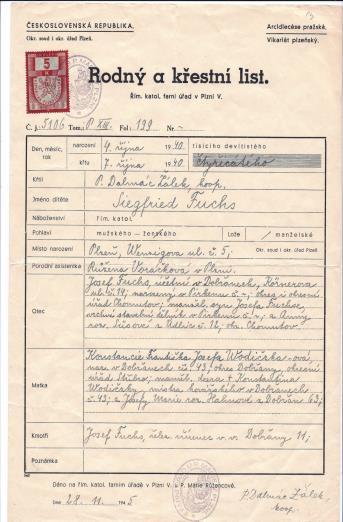 ČESKOSLOVENSKÁ REPUBLIKA.
Okr. soud i okr. úřad Plzeň.
Arcidiecése pražská.
Vikariát plzeňský.
5
K
Rodný a křestní list.
Řím. katol. farní úřad v Plzni V.
Č. j.: 5106 Tom.: P. XIII. Fol: 199 Nr. -
Den, měsíc, rok
narození 4. října 1940. tisícího devítistého
křtu 7. října 1940 čtyřicátého
Křtil
P. Dalmác Žálek, koop.
Jméno dítěte
Siegfried Fuchs
Náboženství
řím. katol.
Pohlaví
mužského - ženského
Lože
/ manželské
Místo narození
Plzeň, Wenzigova ul. č. 5;
Okr. soud i úřad Plzeň
Porodní asistentka
Růžena Voráčková v Plzni.
Otec
Josef Fuchs, účetní v Dobřanech, Körnerova
ul. č. 14; narozený v
úřad Chomutov, manžel. syn Josefa Fuchse,
a Anny
roz. z okr. Chomutov
Matka
Konstancie Františka Josefa Wodička-ová,
nar. v Dobřanech čp. 43, okres Dobřany, okresní
úřad Stříbro; manžel. dcera + Konstantina
Wodičky, mistra kovářského v Dobřanech
č. 43; a Josefy Marie roz. z Dobřan 63;
Kmotři
Josef Fuchs, v. v. Dobřany 11;
Poznámka
Dáno na řím. katol. farním úřadě v Plzni V. u P. Marie Růžencové.
dne 28. 11. 1945
P. Dalmác Žálek
koop.